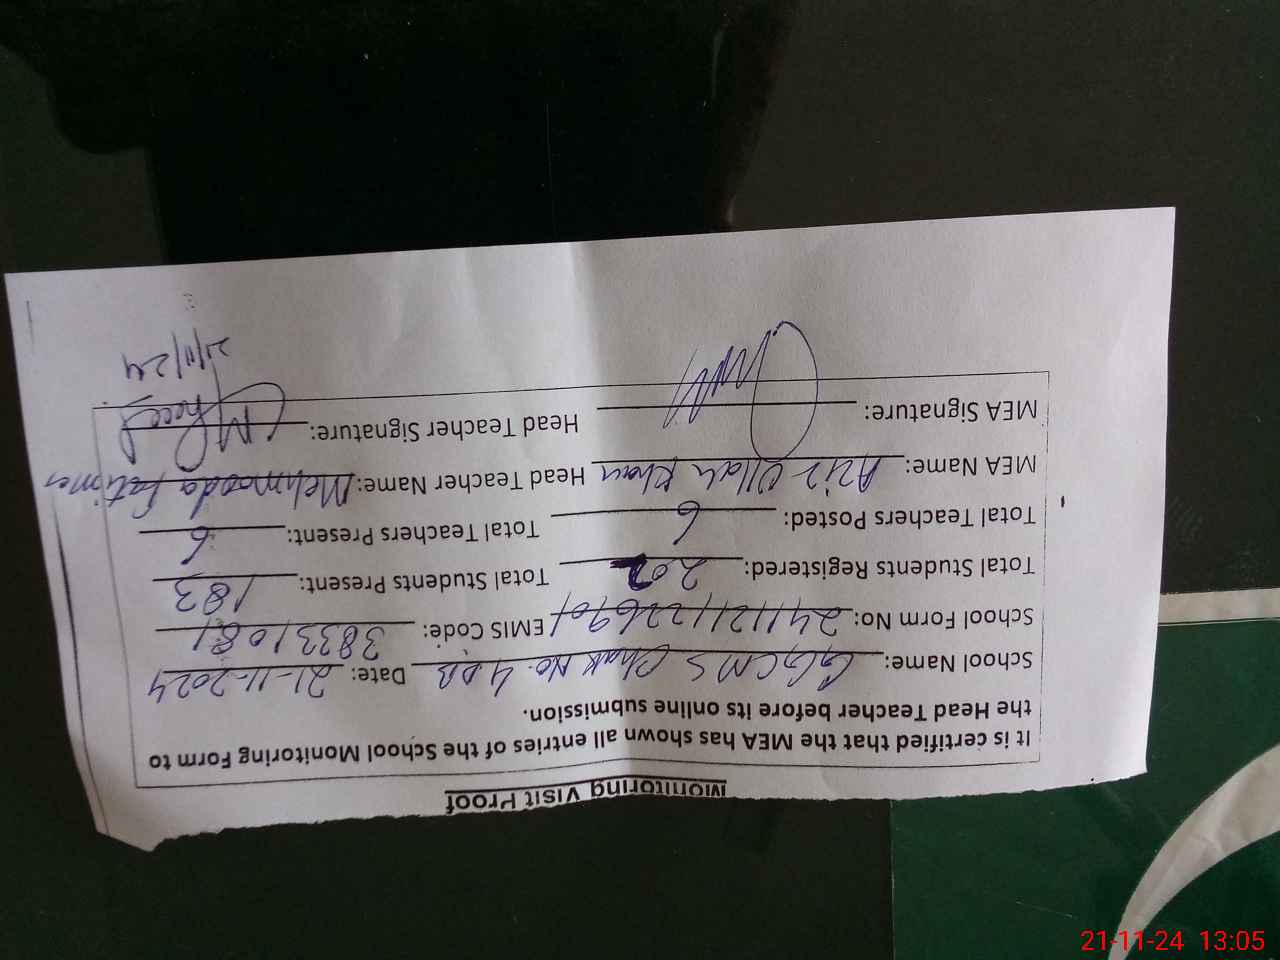 Monitoring Visit Proof
It is certified that the MEA has shown all entries of the School Monitoring Form to
the Head Teacher before its online submission.
School Name: GGCMS Chak No. 4 DB Date: 21-11-2024
School Form No: 241121122690/ EMIS Code: 38331081
Total Students Registered: 202 Total Students Present: 183
Total Teachers Posted: 6 Total Teachers Present: 6
MEA Name: Aziz Ullah Khan Head Teacher Name: Mehmooda Fatima
MEA Signature: Head Teacher Signature:
21/11/24
21-11-24 13:05